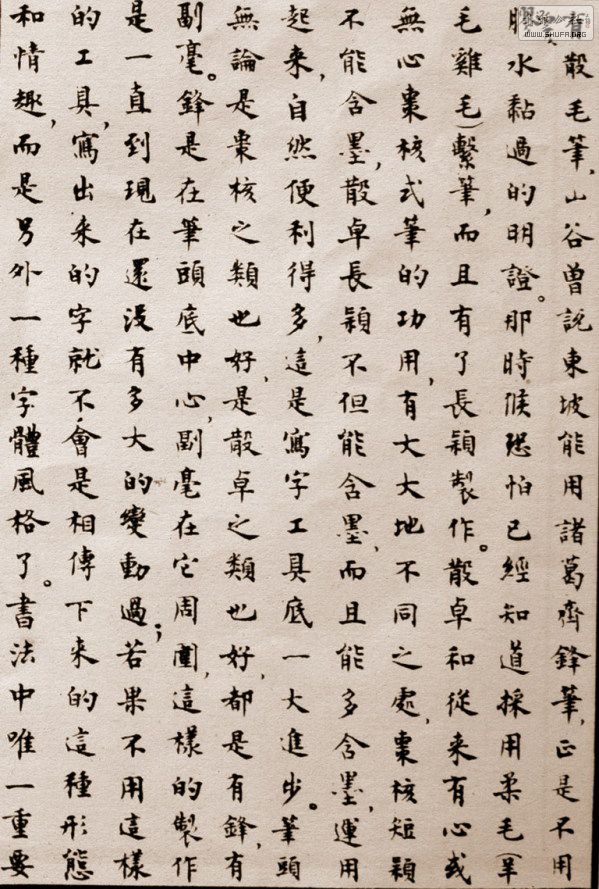 散毛筆,山谷曾說東坡能用諸葛齊鋒筆,正是不用
膠水黏過的明證。那時候恐怕已經知道採用柔毛(羊
毛雞毛)繫筆,而且有了長穎製作。散卓和從來有心或
無心棗核式筆的功用,有大大地不同之處,棗核短穎
不能含墨,散卓長穎不但能含墨,而且能多含墨,運用
起來,自然便利得多,這是寫字工具底一大進步。筆頭
無論是棗核之類也好,是散卓之類也好,都是有鋒,有
副毫。鋒是在筆頭底中心,副毫在它周圍,這樣的製作
是一直到現在還沒有多大的變動過;若果不用這樣
的工具,寫出來的字就不會是相傳下來的這種形態
和情趣,而是另外一種字體風格了。書法中唯一重要
WWW.SHUFA.ORG